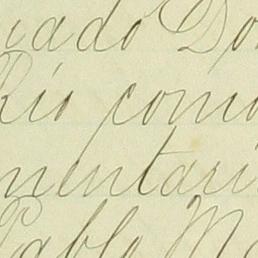 iado Do
Rio como
mentari
Pablo Ma